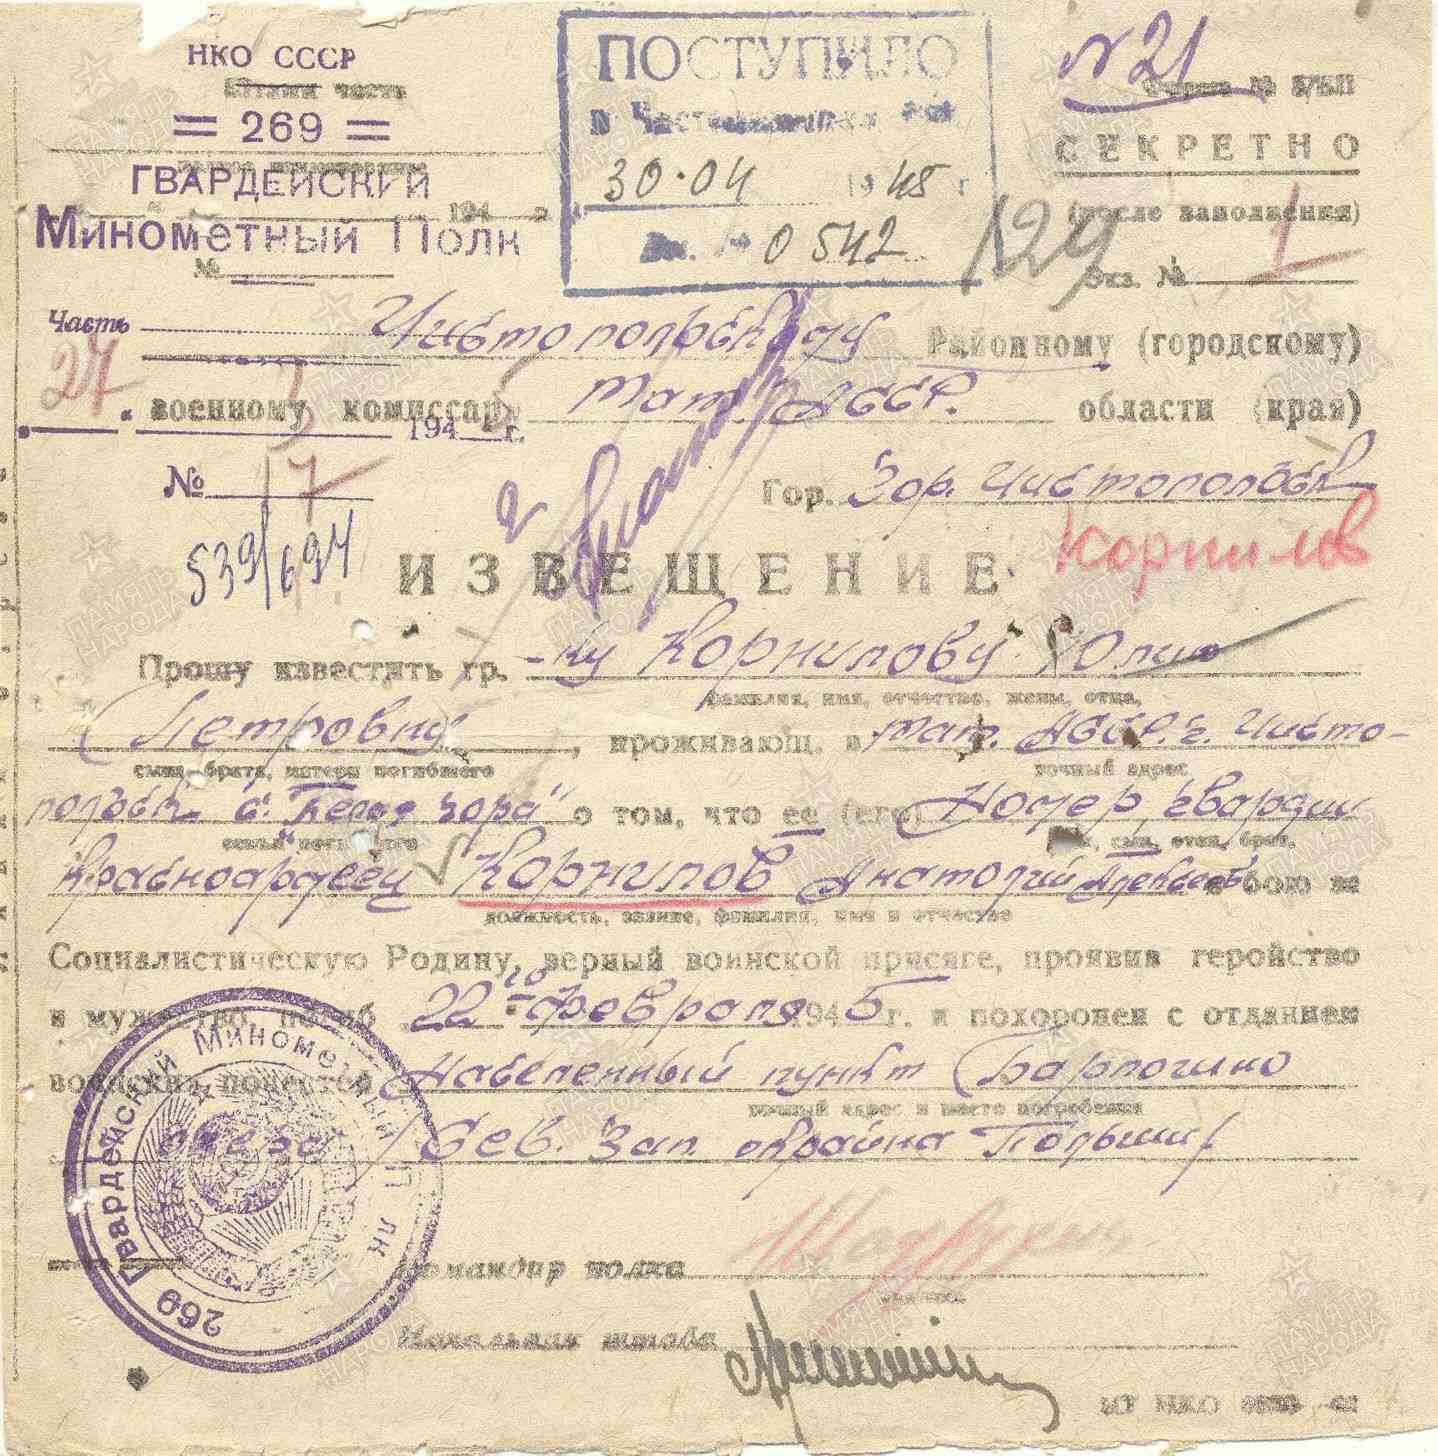 НКО СССР
Штамп часть
= 269 =
ГВАРДЕЙСКИЙ
194 г.
Минометный Полк
№
ПОСТУПИЛО
30.04 1945 г.
Вх. № 0542
N 21
СЕКРЕТНО
(после заполнения)
129
Экз. № 1
Часть
Чистопольскому Районному (городскому)
27
военному комиссару Тат. АССР. области (края)
194 5 г.
№ 17
Гор. Гор. Чистопольск
539/694
2
Корнилов
ИЗВЕЩЕНИЕ
Прошу известить гр. -ку Корнилову Юлию
фамилия, имя, отчество, жены, отца,
Петровну, проживающ. в Тат. АССР. г. Чисто-
сына, брата, матери погибшего
точный адрес
польск с. "Белая Гора" о том, что ее (его) Номер, гвардии
сын, отец, брат,
Красноармеец Корнилов Анатолий Алексеев. в бою за
должность, звание, фамилия, имя и отчество
Социалистическую Родину, верный воинской присяге, проявив геройство
и мужество, погиб 22го февраля 1945 г. и похоронен с отданием
воинских почестей Населенный пункт (Барлогино
точный адрес и место погребения
озера) (Сев. Зап. окраина Польши)
Командир полка
Начальник штаба
269 Гвардейский Минометный Полк
ПАМЯТЬ НАРОДА